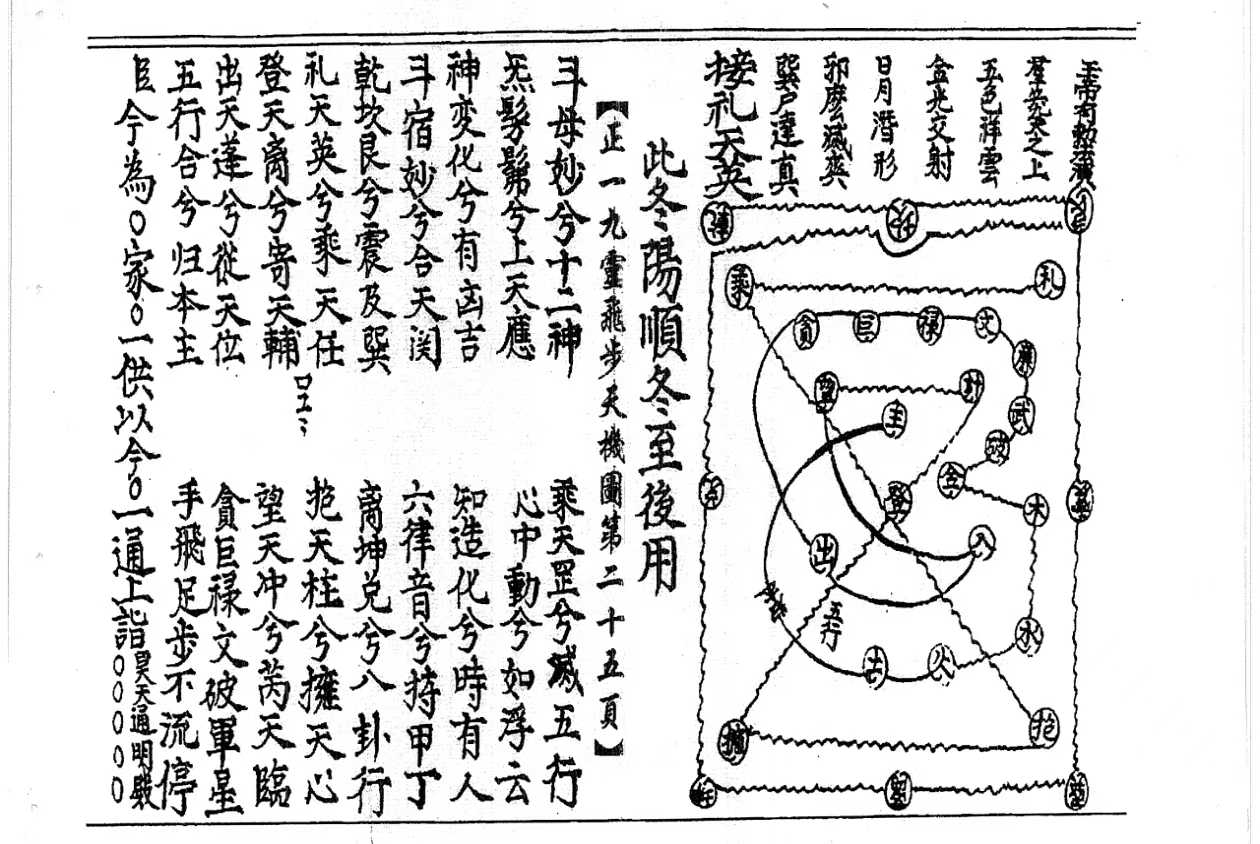 玉帝有勅
羣並天之上
五色祥雲
金光交射
日月潛形
卯麽滅爽
巽户達真
接礼天英
此冬陽順冬至後用
【正一九靈飛步天機圖第二十五頁】
斗母妙兮十二神 乘天罡兮滅五行
炁髣髴兮上天應 心中動兮如浮云
神变化兮有凶吉 知造化兮時有人
斗宿妙兮合天関 六律音兮持甲丁
乾坎艮兮震及巽 离坤兑兮八卦行
礼天英兮乘天任 抱天柱兮擁天心
登天离兮寄天輔 望天冲兮芮天臨
出天蓬兮從天位 貪巨禄文破軍星
五行合兮归本主 手飛足步不流停
臣今為〇家〇一供以今〇一通上詣昊天通明殿〇〇〇〇〇
任
乘
礼
貪
巨
禄
文
廉
武
破
計
主
登
木
入
出
五行
水
火
土
擁
抱